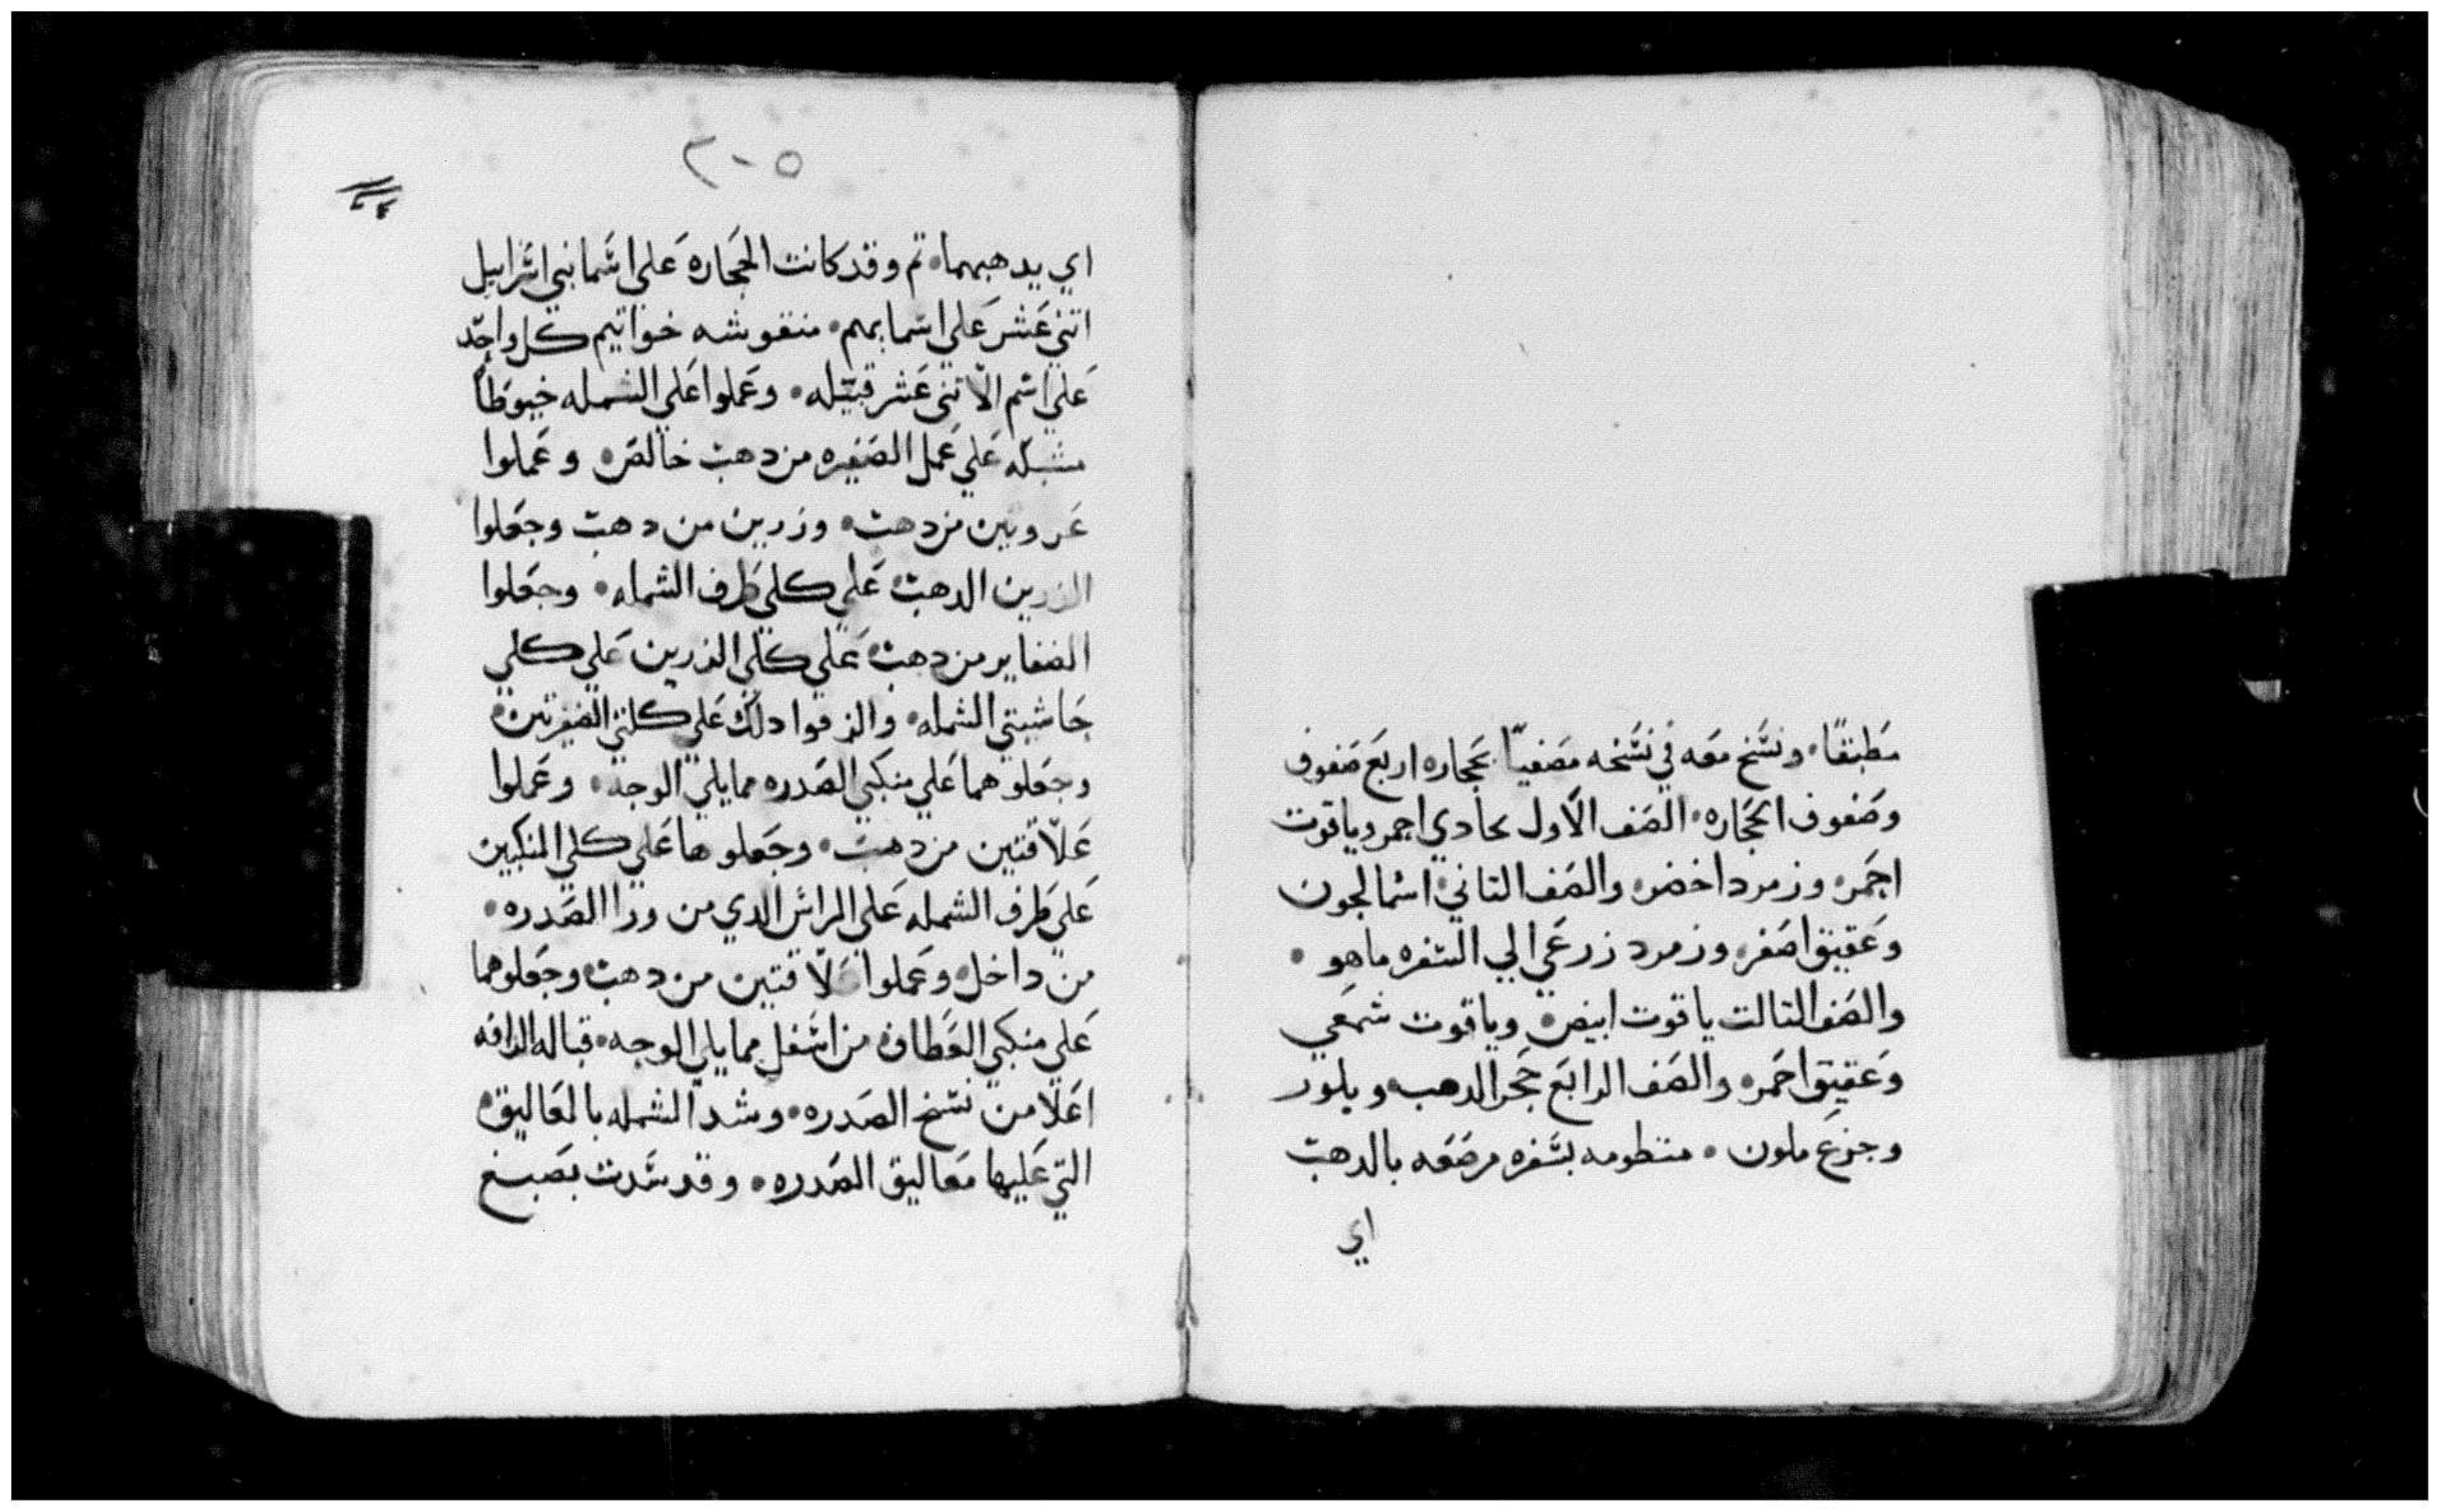 مطبقًا. ونسخ معه في نسخه مصفيًا بحجاره اربع صفوف
وصفوف الحجاره. الصف الاول بحادي احمر وياقوت
احمر. وزمرد اخضر. والصف التاني اسمالجون
وعقيق اصفر. وزمرد زرعي الي الشفره ماهو.
والصف التالت ياقوت ابيض. وياقوت شمعي
وعقيق احمر. والصف الرابع حجر الدهب وبلور
وجزع ملون. منظومه بشفره مرصعه بالدهب
اي
٢٠٥
اي يدهبهما. تم وقد كانت الحجاره علي اسما بني اسراييل
اتني عشر علي اسمايهم. منقوشه خواتيم كل واحد
علي اسم الاتني عشر قبيله. وعملوا علي الشمله خيوطًا
مشبكه علي عمل الضفيره من دهب خالص. وعملوا
عروتين من دهب. وزرين من دهب وجعلوا
الزرين الدهب علي كلي طرف الشمله. وجعلوا
الضفاير من دهب علي كلي الزرين علي كلي
حاشيتي الشمله. والزقوا دلك علي كلتي الضفرتين.
وجعلوهما علي منكبي الصدره مما يلي الوجه. وعملوا
علاقتين من دهب. وجعلوها علي كلي المنكبين
علي طرف الشمله علي الراس الدي من ورا الصدره.
من داخل. وعملوا علاقتين من دهب وجعلوهما
علي منكبي العطاف من اسفل مما يلي الوجه. قباله الزافه
اعلا من نسخ الصدره. وشد الشمله بالمعاليق.
التي عليها معاليق الصدره. وقد شدت بصبغ